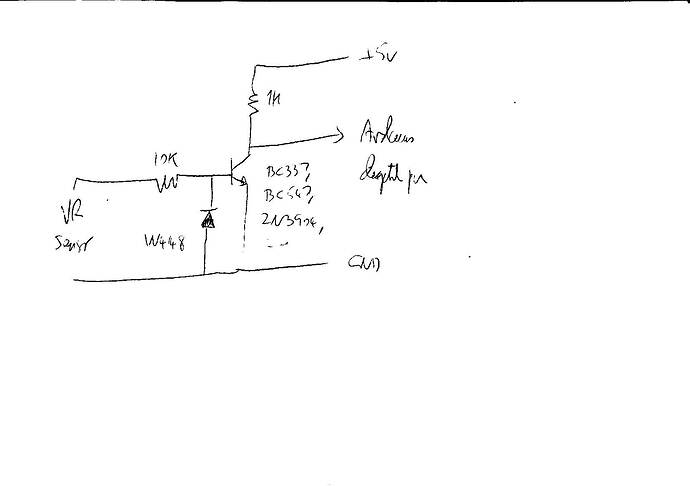 +5v
1K
Arduino
digital pin
10K
BC337,
BC547,
2N3904,
...
VR
Sensor
1N4148
GND